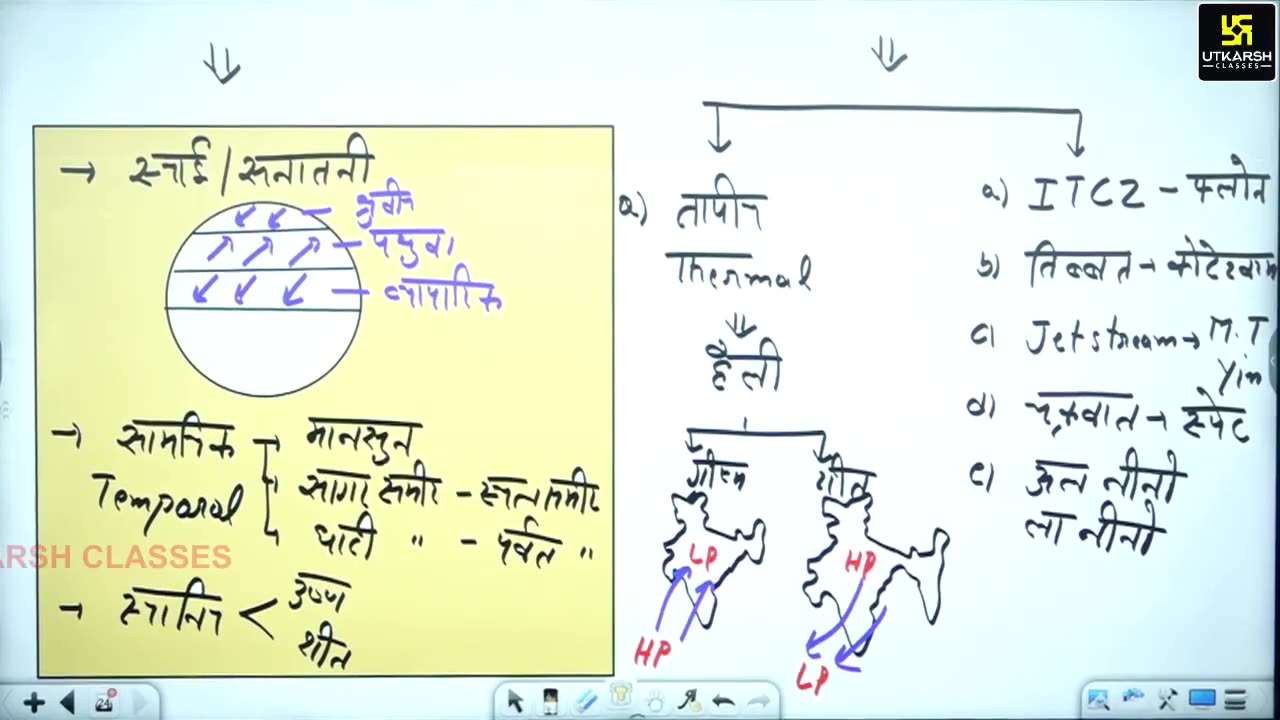 UTKARSH
CLASSES
→ स्थाई/सनातनी
ध्रुवीय
पछुवा
व्यापारिक
→ सामयिक → मानसून
Temparal सागर समीर - स्थल समीर
घाटी " - पर्वत "
→ स्थानिय < उष्ण
शीत
ARSH CLASSES
a) तापीय
Thermal
हैली
ग्रीष्म शीत
LP HP
HP LP
a) ITCZ - फ्लोन
b) तिब्बत → कोटेश्वरम
c) Jetstream → M.T
Yin
d) चक्रवात → स्पेट
e) अल नीनो
ला नीनो
24